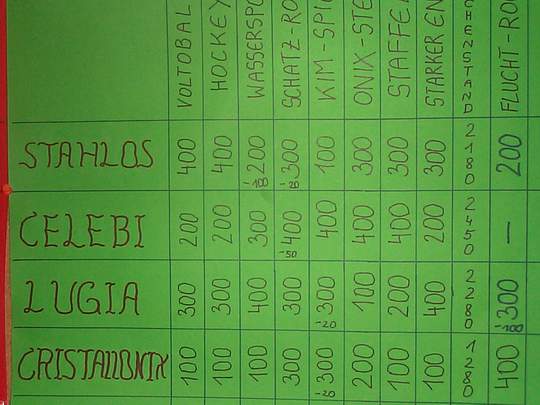 VOLTOBAL HOCKEY WASSERSPO SCHATZ-RO KIM-SPIE ONIX-STE STAFFEL STARKER EN CHENSTAND FLUCHT-ROU
STAHLOS 400 400 200 -100 300 -20 100 300 300 300 2180 200
CELEBI 200 200 300 400 -50 400 400 400 200 2450 -
LUGIA 300 300 400 300 300 -20 100 200 400 2280 300 -100
CRISTALLONIX 100 100 100 300 300 -20 200 100 100 1280 400